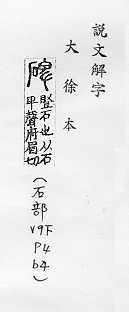 說文解字
大徐本
碑
豎石也从石
卑聲府眉切
(石部
V9下
P4
b4)